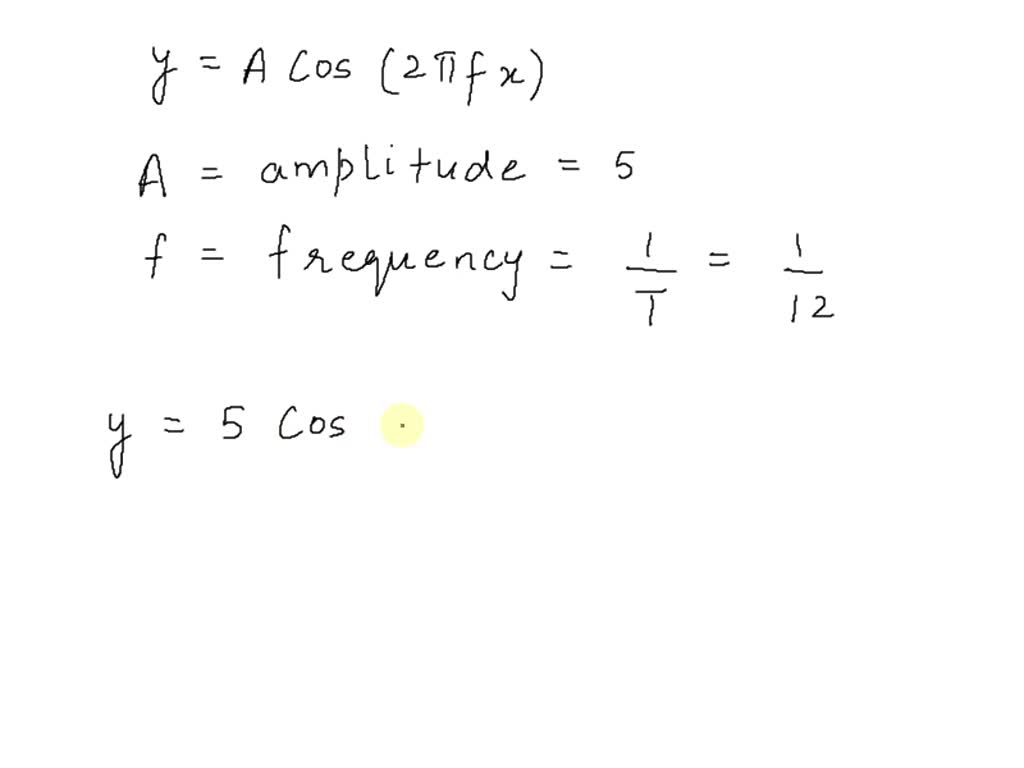 y = A Cos (2πfx)
A = amplitude = 5
f = frequency = 1/T = 1/12
y = 5 Cos